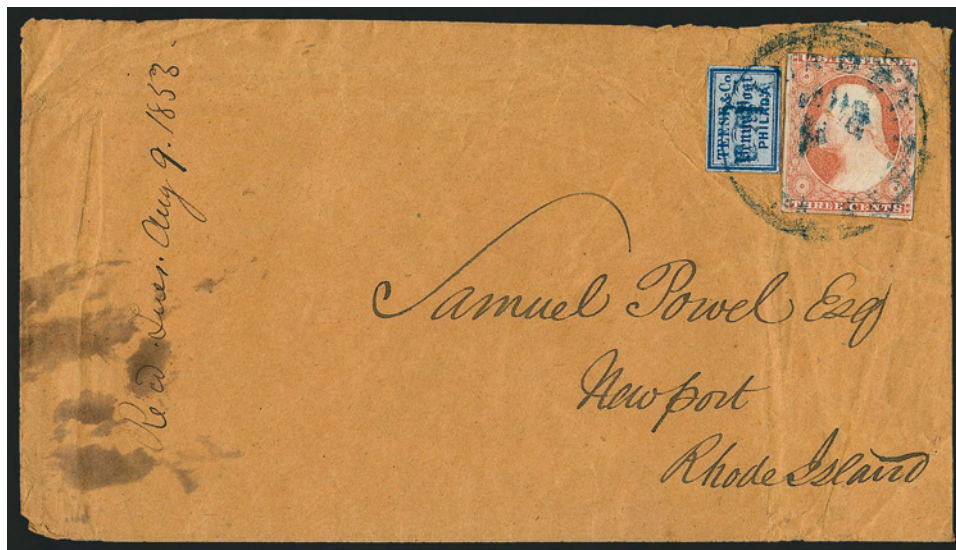 Rec'd Tues. Aug 9. 1853.
TEESE & Co.
Penny Post
PHILADA
THREE CENTS
Samuel Powel Esq
Newport
Rhode Island